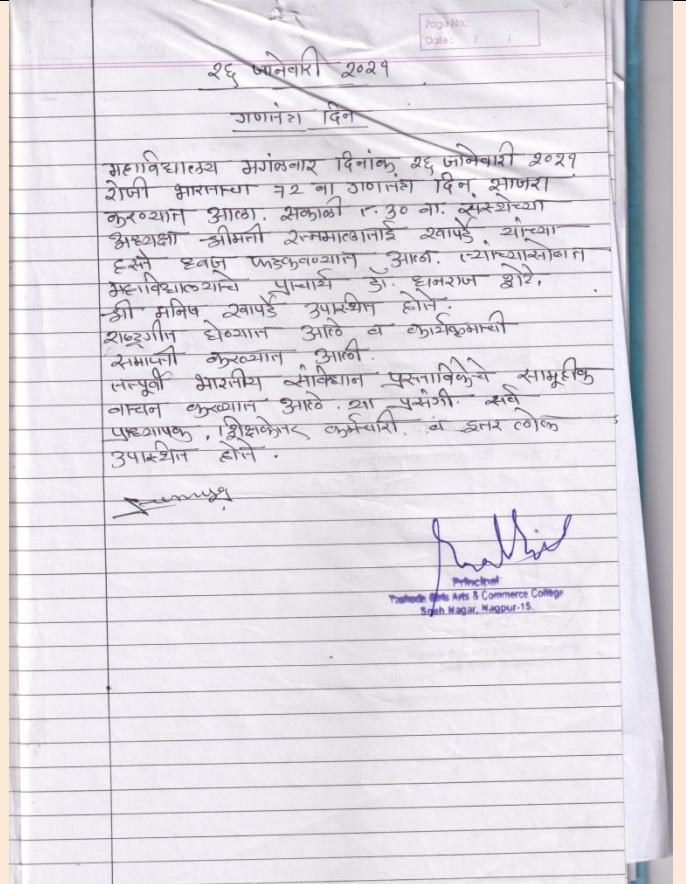 Page No.:
Date: / /
२६ जानेवारी २०२१
गणतंत्र दिन
महाविद्यालय मगंळवार दिनांक २६ जानेवारी २०२१
रोजी भारताचा ७२ वा गणतंत्र दिन साजरा
करण्यात आला. सकाळी ८.३० वा. संस्थेच्या
अध्यक्षा श्रीमती रत्नमालाताई खापर्डे यांच्या
हस्ते ध्वज फडकवण्यात आला. त्यांच्यासोबत
महाविद्यालयाचे प्राचार्य डॉ. धनराज शेटे,
श्री मनिष खापर्डे उपास्थित होते.
राष्ट्रगीत घेण्यात आले व कार्यक्रमाची
समाप्ती करण्यात आली.
तत्पूर्वी भारतीय संविधान प्रस्ताविकेचे सामूहीक
वाचन करण्यात आले. या प्रसंगी सर्व
प्राध्यापक, शिक्षकेतर कर्मचारी व इतर लोक
उपास्थित होते.
Principal
Yashoda Girls Arts & Commerce College
Sneh Nagar, Nagpur-15.